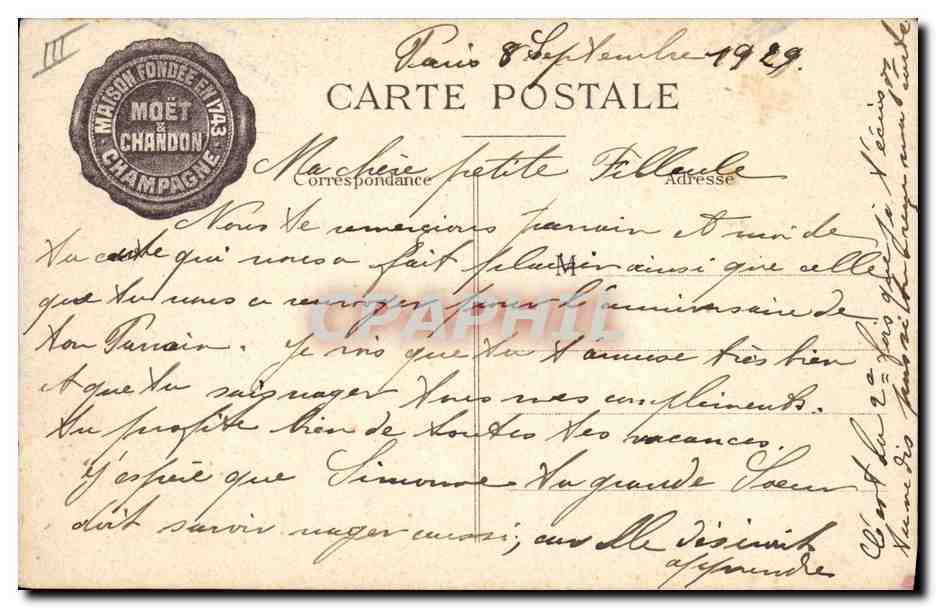 III
MAISON FONDÉE EN 1743
MOËT
&
CHANDON
CHAMPAGNE
Paris 8 Septembre 1929.
CARTE POSTALE
Ma chère petite Filleule
Correspondance
Adresse
Nous te remercions parrain et moi de
ta carte qui nous a fait plaisir ainsi que celle
M
que tu nous a envoyer pour l'anniversaire de
CPAPHIL
ton Parrain. Je vois que tu t'amuse très bien
et que tu sais nager tous mes compliments.
tu profite bien de toutes tes vacances.
J'espère que Simonne ta grande Soeur
doit savoir nager aussi, car elle désirait
apprendre
C'est la 2e fois que je t'écris
tu me dis